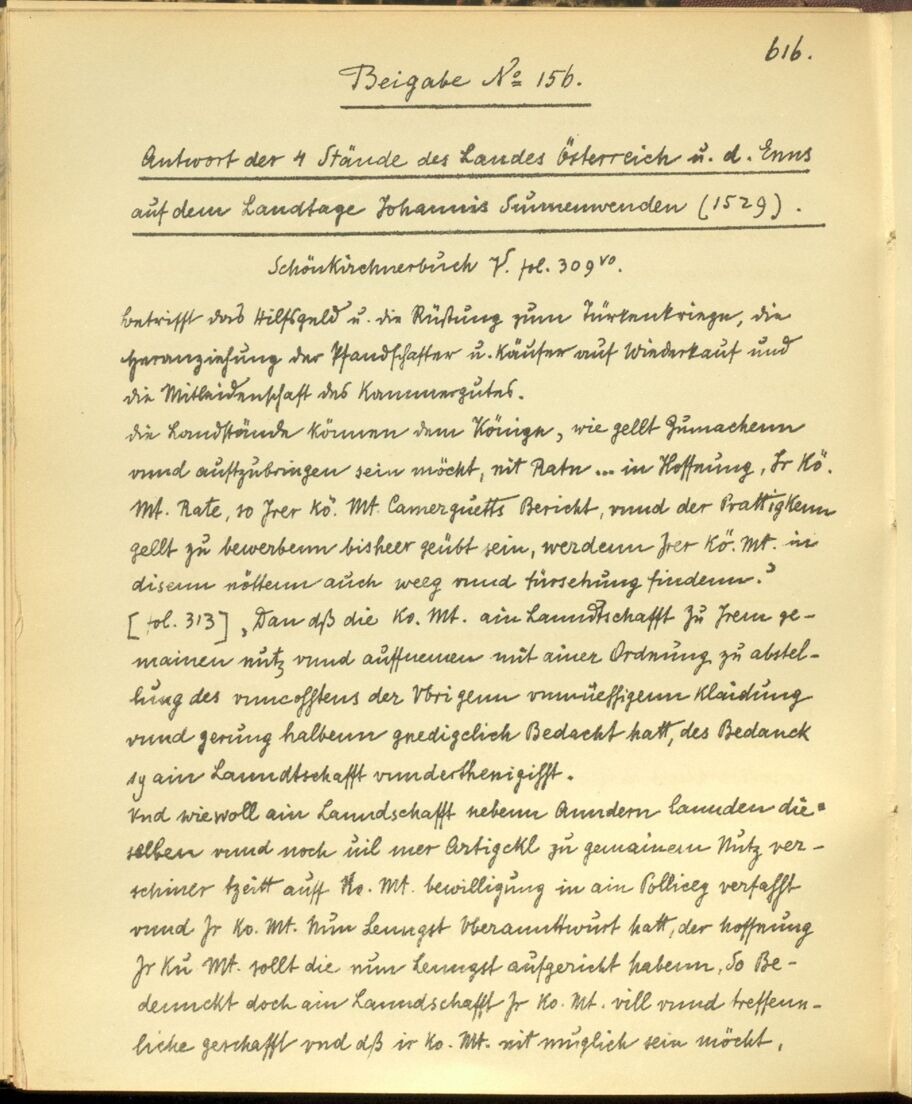 616.
Beigabe No 156.
Antwort der 4 Stände des Landes Österreich u. d. Enns
auf dem Landtage Johannis Sunnenwenden (1529).
Schönkirchnerbuch V. fol. 309vo.
betrifft das Hilfsgeld u. die Rüstung zum Türkenkriege, die
Heranziehung der Pfandschafter u. Käufer auf Wiederkauf und
die Mitleidenschaft des Kammergutes.
die Landstände können dem Könige, wie gellt Zumachenn
vnnd aufzubringen sein möcht, nit Ratn ... in Hoffnung, Ir Kö.
Mt. Rate, so Irer Kö. Mt. Camerguetts Bericht, vnnd der Prattigkenn
gellt zu bewerbenn bisheer geübt sein, werdenn Irer Kö. Mt. in
disenn nöttenn auch weeg vnnd fürsehung findenn."
[fol. 313] „Dan dß die Ko. Mt. ain Lanndtschafft zu Irem ge-
mainen nutz vnnd auffnemen mit ainer Ordnung zu abstel-
lung des vnncosstens der Vbrigenn vnmüessigenn Klaidung
vnnd Zerung halbenn gnedigclich Bedacht hatt, des Bedanck
sy ain Lanndtschafft vnnderthenigisst.
Vnd wiewoll ain Lanndschafft nebenn Anndern lannden die-
selben vnnd noch uil mer Artigckl zu gemainem Nutz ver-
schiner tzeitt auff Ko. Mt. bewilligung in ain Pollicey verfasst
vnnd Ir Ko. Mt. Nun Lenngst Vberanntwurt hatt, der hoffnung
Ir Ku Mt. sollt die nun Lenngst aufgericht habenn, So Be-
dennckt doch ain Lanndschafft Ir Ko. Mt. vill vnnd treffenn-
liche geschafft vnd dß ir Ko. Mt. nit muglich sein möcht,